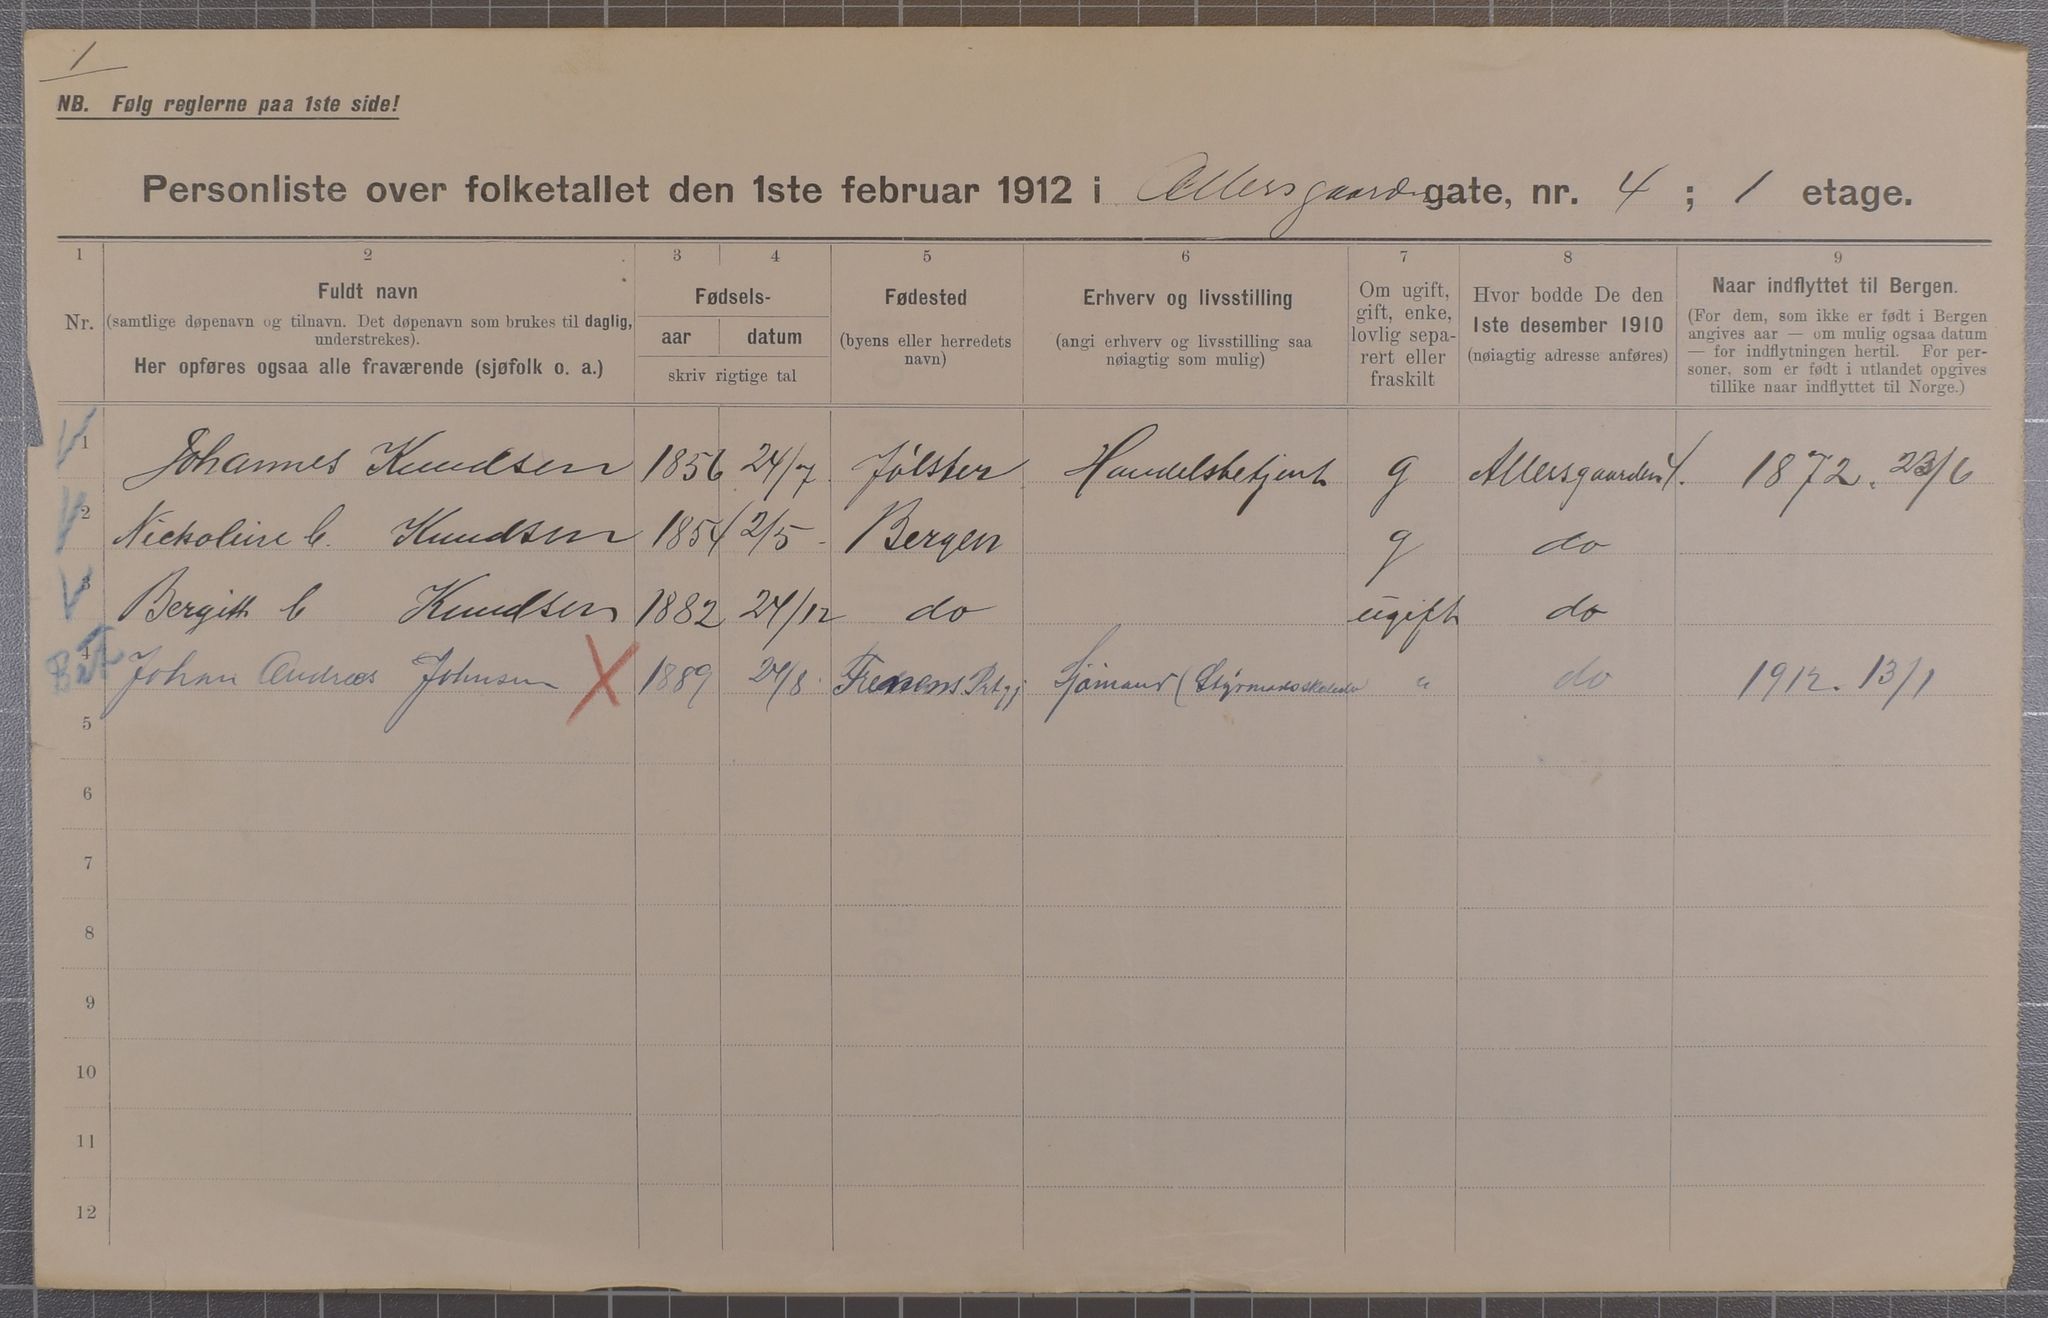 1
NB. Følg reglerne paa 1ste side!
Personliste over folketallet den 1ste februar 1912 i Allersgaardengate, nr. 4 ; 1 etage.
1 2 3 4 5 6 7 8 9
Nr.
Fuldt navn
(samtlige døpenavn og tilnavn. Det døpenavn som brukes til daglig,
understrekes).
Her opføres ogsaa alle fraværende (sjøfolk o. a.)
Fødsels-
aar datum
skriv rigtige tal
Fødested
(byens eller herredets
navn)
Erhverv og livsstilling
(angi erhverv og livsstilling saa
nøiagtig som mulig)
Om ugift,
gift, enke,
lovlig sepa-
rert eller
fraskilt
Hvor bodde De den
1ste desember 1910
(nøiagtig adresse anføres)
Naar indflyttet til Bergen.
(For dem, som ikke er født i Bergen
angives aar — om mulig ogsaa datum
— for indflytningen hertil. For per-
soner, som er født i utlandet opgives
tillike naar indflyttet til Norge.)
1 Johannes Knudsen 1856 24/7 Jølster Handelsbetjent g Allersgaarden 4. 1872. 23/6
2 Nickoline C. Knudsen 1854 2/5 Bergen g do
3 Bergitte C Knudsen 1882 24/12 do ugift do
4 Johan Andreas Johnsen X 1889 24/8 Sjømand " do 1912. 13/1
5
6
7
8
9
10
11
12